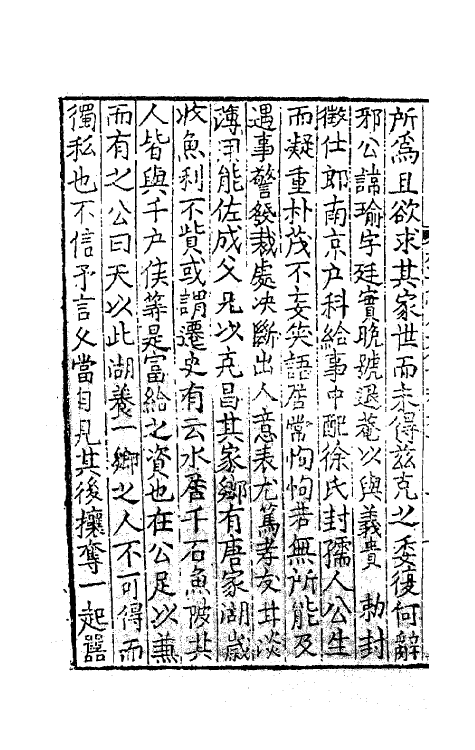 所爲且欲求其家世而未得兹克之委復何辭
邪公諱瑜字廷實晚號退菴以與義貴　勅封
徵仕郎南京户科給事中配徐氏封孺人公生
而凝重朴茂不妄笑語居常恂恂若無所能及
遇事警發裁處决斷出人意表尤篤孝友甘淡
薄用能佐成父兄以克昌其家鄉有唐家湖歲
收魚利不貲或謂遷史有云水居千石魚陂其
人皆與千户侯等是富給之資也在公足以兼
而有之公曰天以此湖養一鄉之人不可得而
獨私也不信予言父當自見其後攘奪一起嚣